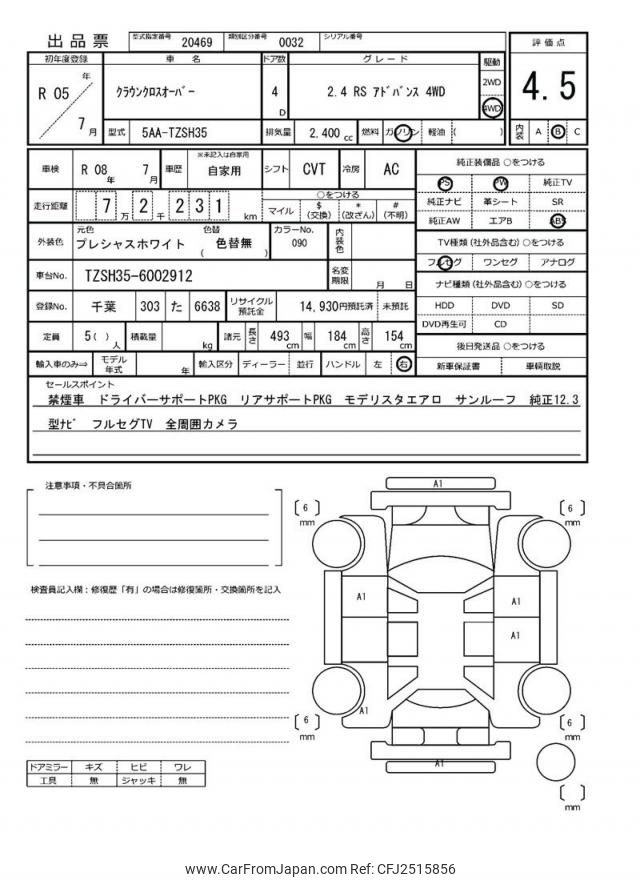 出品票 型式指定番号 20469 類別区分番号 0032 シリアル番号
初年度登録 車名 ドア数 グレード 駆動 評価点
R 05 年 7 月 クラウンクロスオーバー 4 D 2.4 RS アドバンス 4WD 2WD 4WD 4.5
型式 5AA-TZSH35 排気量 2,400 cc 燃料 ガソリン 軽油 ( ) 内装 A B C
車検 R 08 年 7 月 車歴 ※未記入は自家用 自家用 シフト CVT 冷房 AC 純正装備品 ○をつける
PS PW 純正TV
走行距離 7 万 2 千 2 3 1 km ○をつける
マイル $ (交換) * (改ざん) # (不明)
純正ナビ 革シート SR
純正AW エアB ABS
外装色 元色 プレシャスホワイト 色替 ( 色替無 ) カラーNo. 090 内装色
TV種類 (社外品含む) ○をつける
フルセグ ワンセグ アナログ
車台No. TZSH35-6002912 名変期限 月 日
ナビ種類 (社外品含む) ○をつける
登録No. 千葉 303 た 6638 リサイクル預託金 14,930円預託済 未預託
HDD DVD SD
DVD再生可 CD
定員 5( ) 人 積載量 kg 諸元 長さ 493 cm 幅 184 cm 高さ 154 cm
後日発送品 ○をつける
輸入車のみ⇒ モデル年式 年 輸入区分 ディーラー 並行 ハンドル 左 右 新車保証書 車輌取説
セールスポイント
禁煙車 ドライバーサポートPKG リアサポートPKG モデリスタエアロ サンルーフ 純正12.3
型ナビ フルセグTV 全周囲カメラ
注意事項・不具合箇所
検査員記入欄:修復歴「有」の場合は修復箇所・交換箇所を記入
A1
6 mm
6 mm
A1
A1
A1
A1
6 mm
6 mm
A1
mm
ドアミラー キズ ヒビ ワレ
工具 無 ジャッキ 無
www.CarFromJapan.com Ref: CFJ2515856